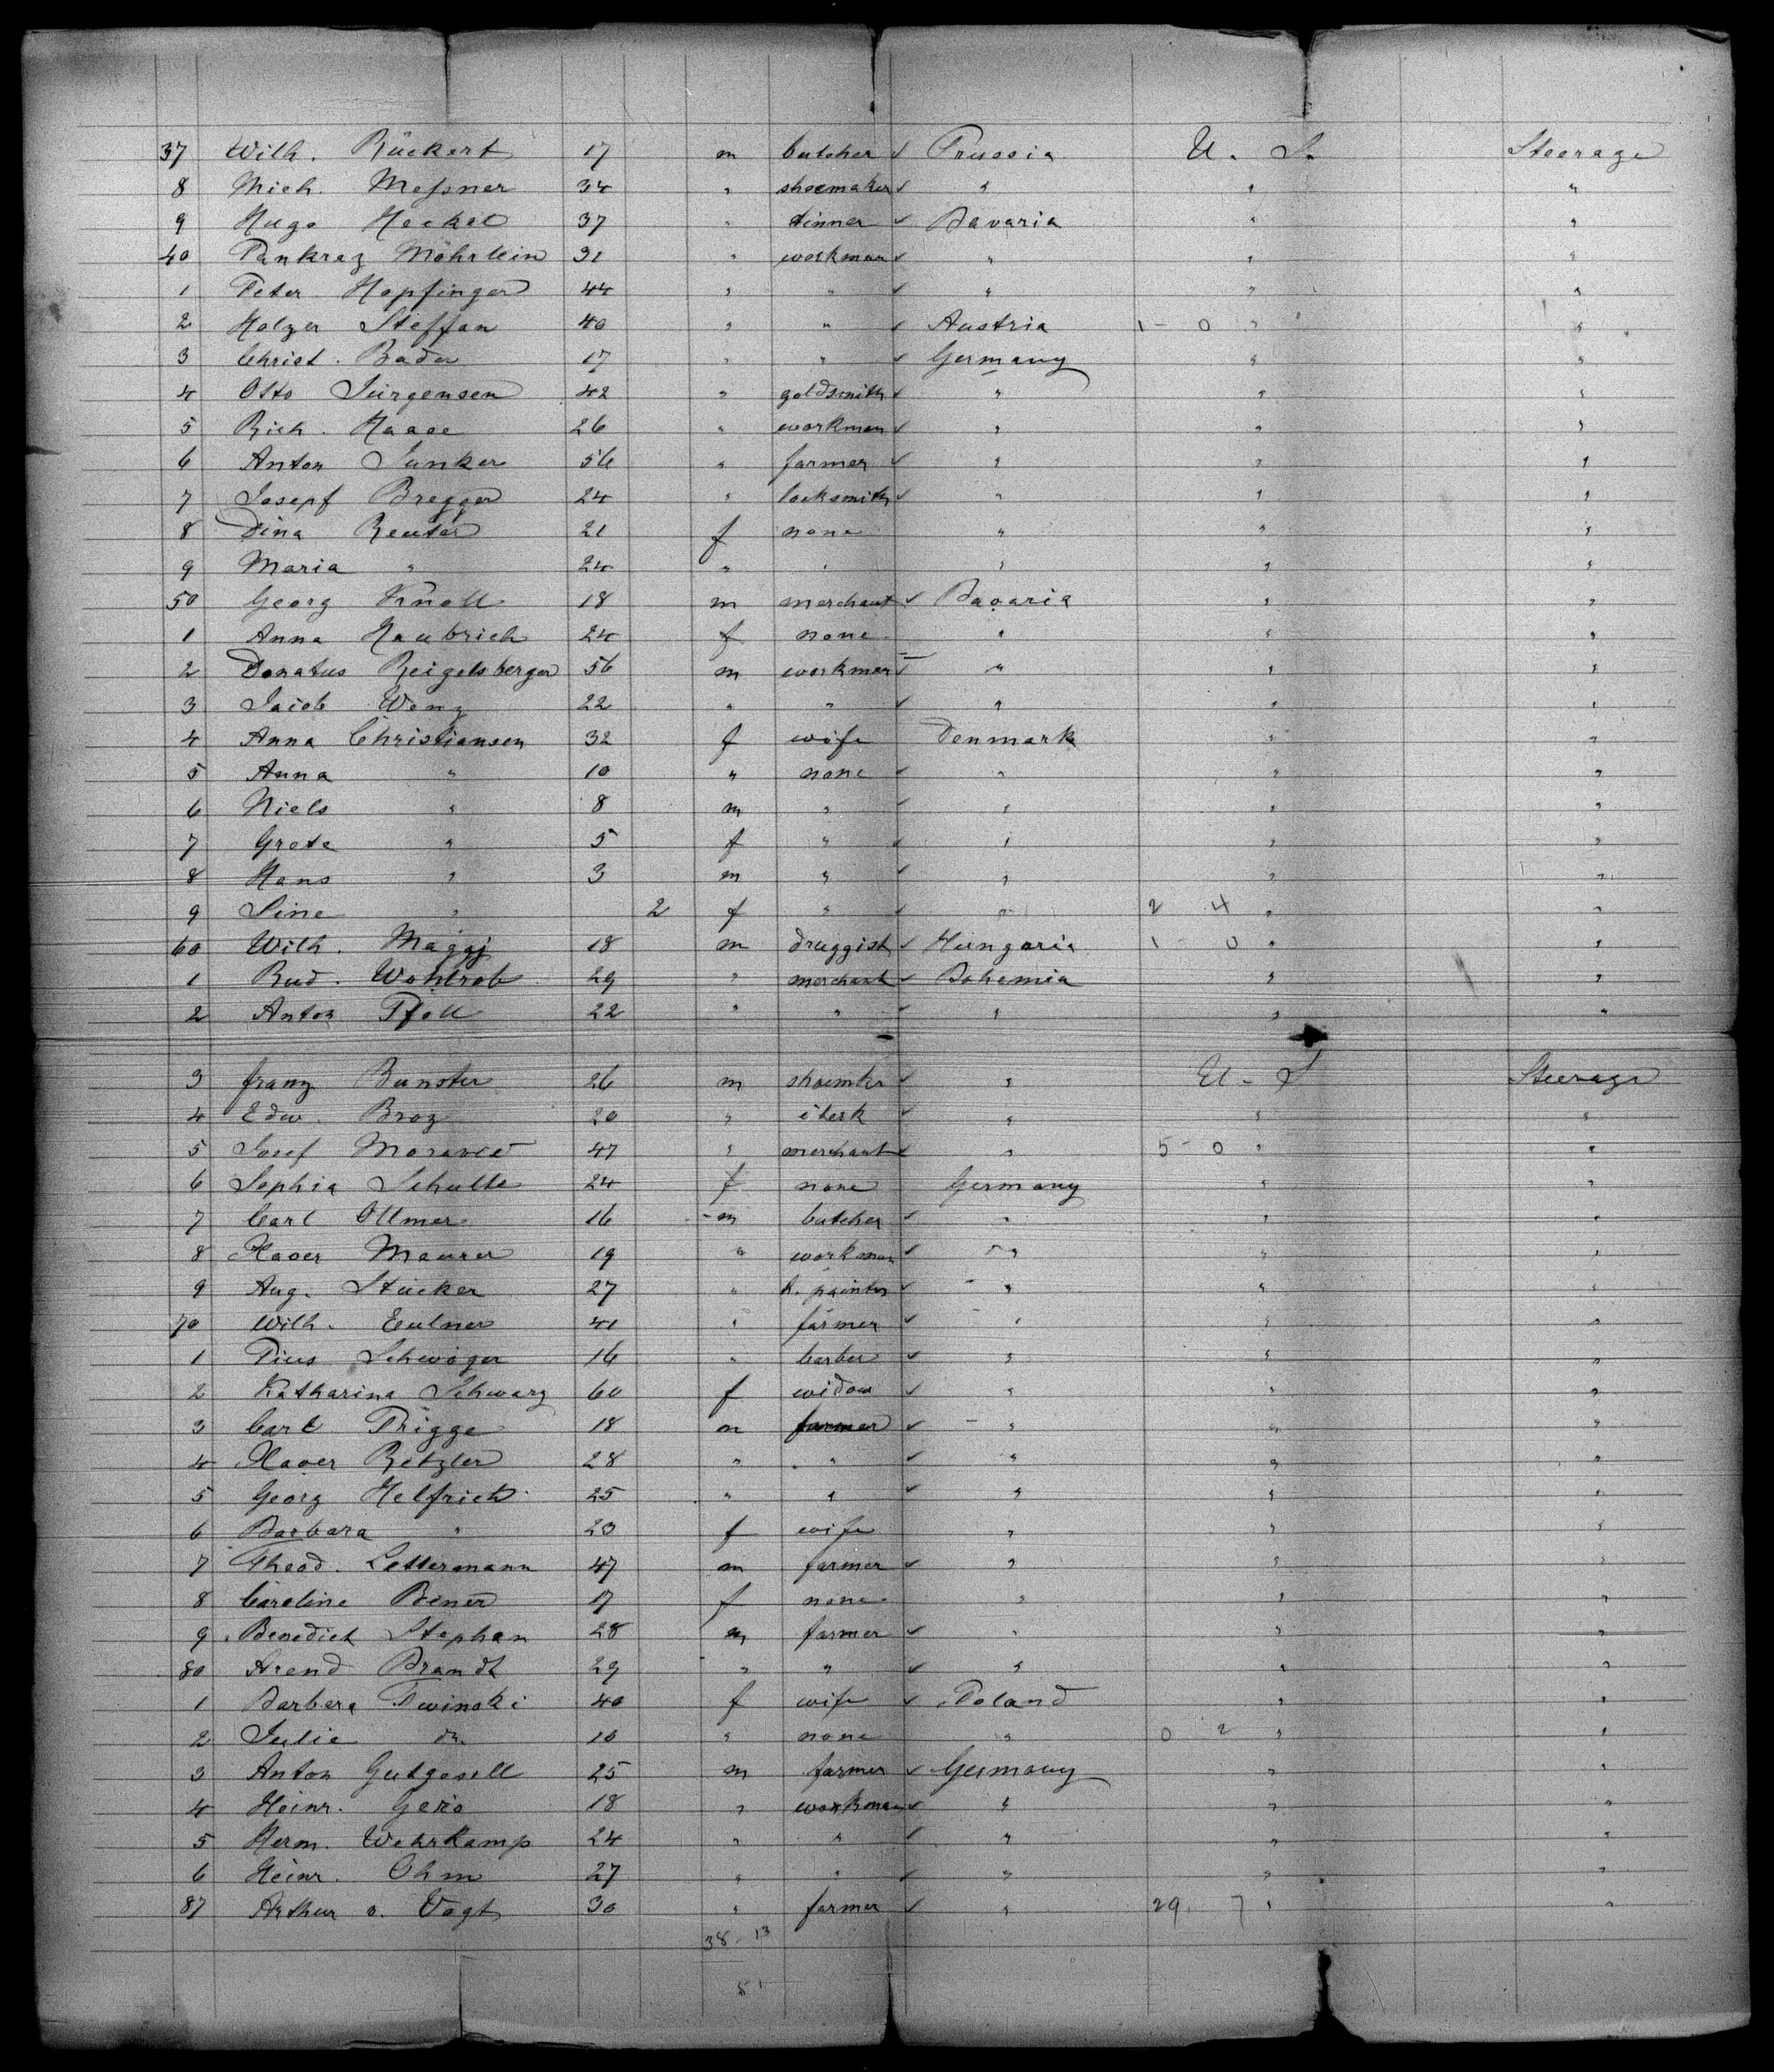 37 Wilh. Rückert 17 m butcher ✓ Prussia U. S. Steerage
8 Mich. Meſsner 34 " shoemaker ✓ " " "
9 Hugo Heckel 37 " tinner ✓ Bavaria " "
40 Pankraz Möhrlein 31 " workman ✓ " " "
1 Peter Hopfinger 44 " " ✓ " " "
2 Holzer Steffan 40 " " ✓ Austria 1 - 0 " "
3 Christ. Bader 17 " " ✓ Germany " "
4 Otto Jürgensen 42 " goldsmith ✓ " " "
5 Rich. Haase 26 " workman ✓ " " "
6 Anton Junker 56 " farmer ✓ " " "
7 Josepf Bregger 24 " locksmith ✓ " " "
8 Dina Reuter 21 f none " " "
9 Maria " 24 " " " " "
50 Georg Knoll 18 m merchant ✓ Bavaria " "
1 Anna Haubrich 24 f none " " "
2 Donatus Reigelsberger 56 m workman ✓ " " "
3 Jacob Wenz 22 " " ✓ " " "
4 Anna Christiansen 32 f wife Denmark " "
5 Anna " 10 " none ✓ " " "
6 Niels " 8 m " ✓ " " "
7 Grete " 5 f " ✓ " " "
8 Hans " 3 m " ✓ " " "
9 Sine " 2 f " ✓ " 2 4 " "
60 Wilh. Maggj 18 m druggist ✓ Hungaria 1 - 0 " "
1 Rud. Wohlrab 29 " merchant ✓ Bohemia " "
2 Anton Pfoll 22 " " ✓ " " "
3 Franz Bunster 26 m shoemker ✓ " U. S. Steerage
4 Edw. Broz 20 " clerk ✓ " " "
5 Josef 47 " merchant ✓ " 5 - 0 " "
6 Sophia Schulte 24 f none Germany " "
7 Carl Ollmer 16 m butcher ✓ " " "
8 Xaver Maurer 19 " workman ✓ " " "
9 Aug. Stücker 27 " h. painter ✓ " " "
70 Wilh. Eulner 41 " farmer ✓ " " "
1 Pius Schwöger 16 " barber ✓ " " "
2 Katharina Schwarz 60 f widow ✓ " " "
3 Carl Prigge 18 m farmer ✓ " " "
4 Xaver Retzler 28 " " ✓ " " "
5 Georg Helfrich 25 " " ✓ " " "
6 Barbara " 23 f wife " " "
7 Theod. Lettermann 47 m farmer ✓ " " "
8 Caroline 17 f none " " "
9 Benedict Stephan 28 m farmer ✓ " " "
80 Arend Brandt 29 " " ✓ " " "
1 Barbara 40 f wife ✓ Poland " "
2 Julie do. 10 " none " 0 2 " "
3 Anton Gutgesell 25 m farmer ✓ Germany " "
4 Heinr. 18 " workman ✓ " " "
5 Herm. Wehrkamp 24 " " ✓ " " "
6 Heinr. Ohm 27 " " ✓ " " "
87 Arthur v. Vogt 30 " farmer ✓ " 29 7 " "
38 - 13
51